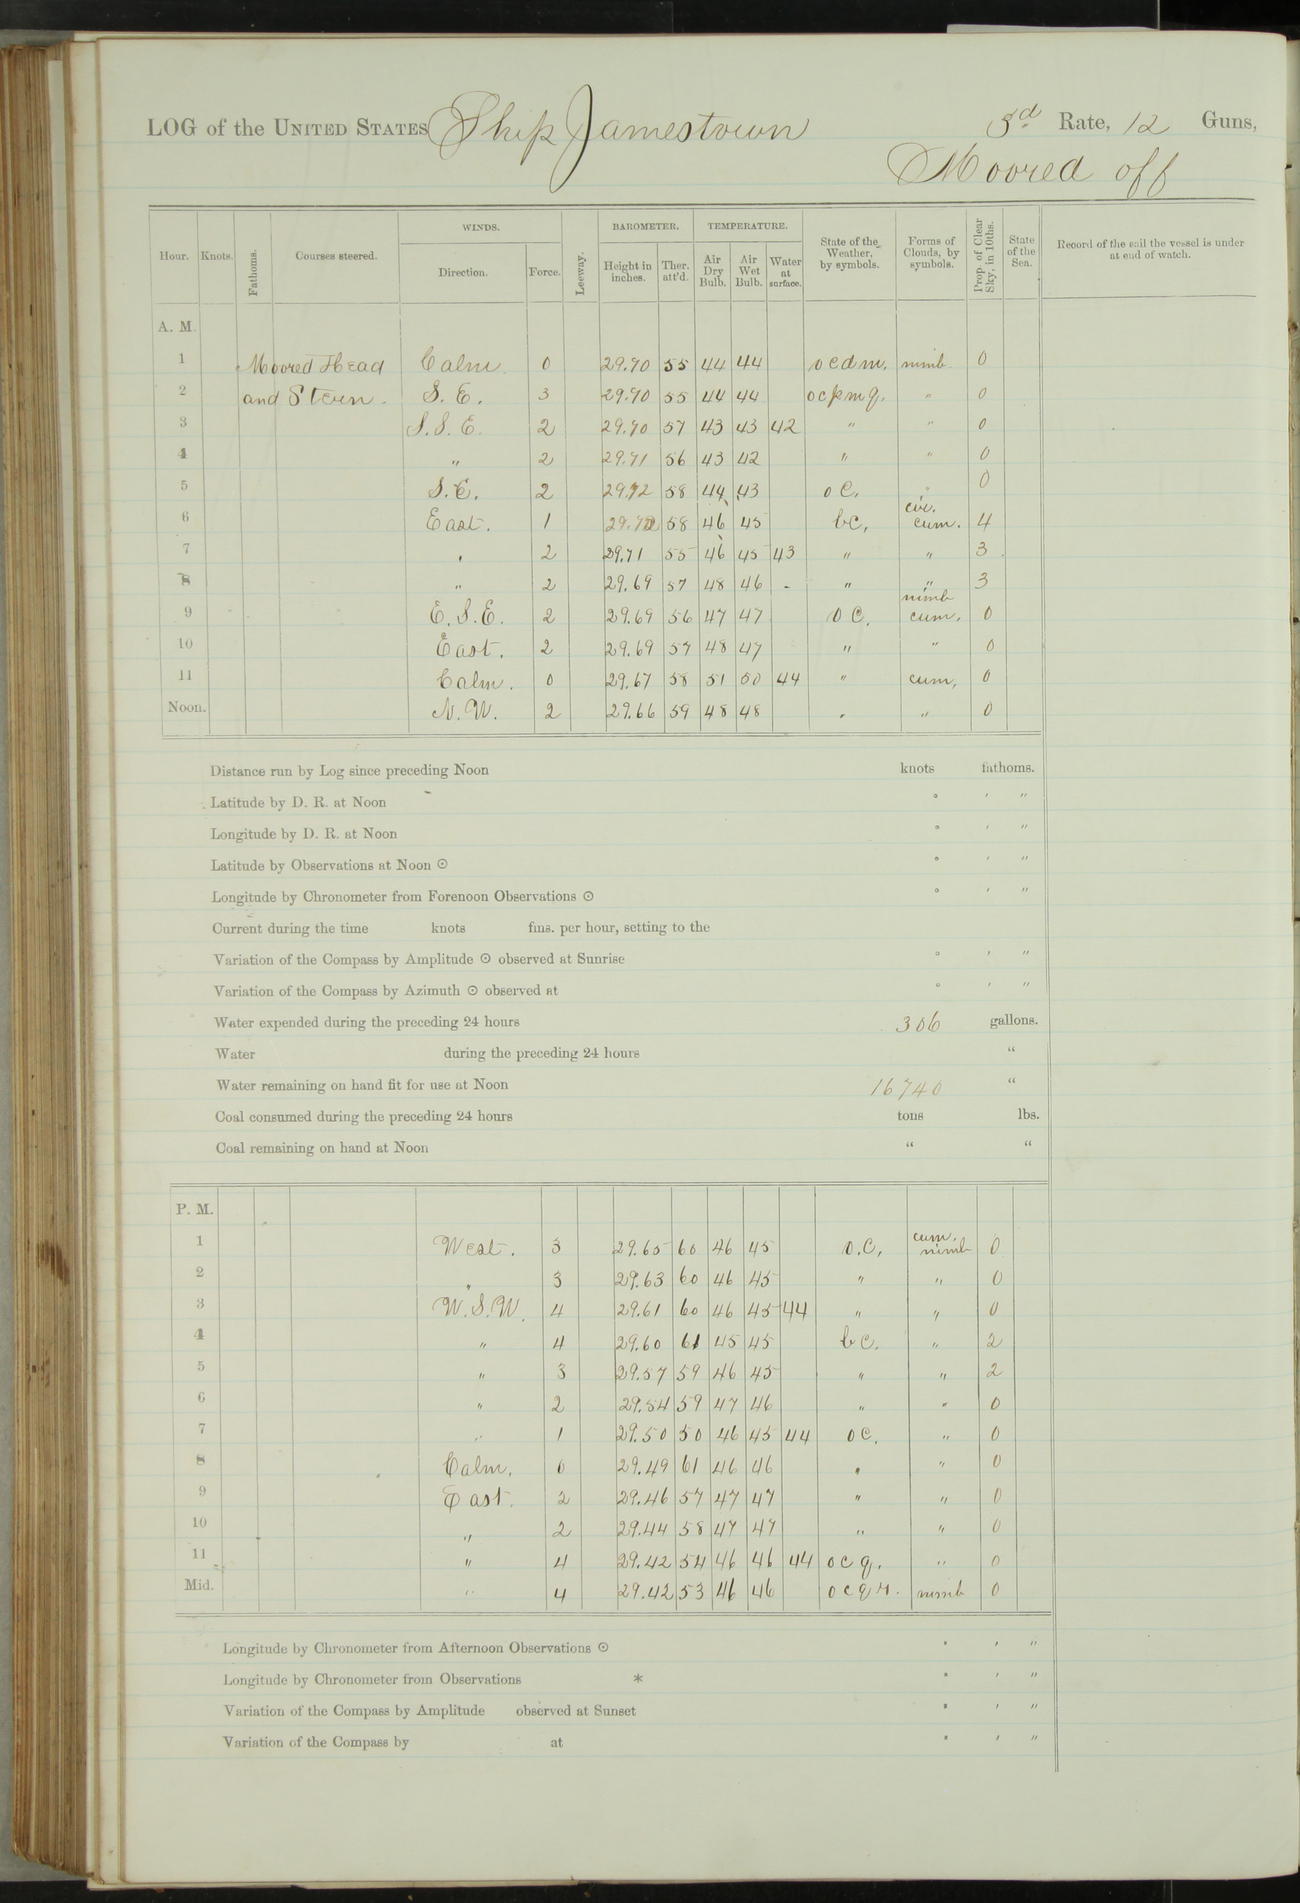 LOG of the UNITED STATES Ship Jamestown 3d Rate, 12 Guns,
Moored off
Hour. Knots. Fathoms. Courses steered. WINDS. Direction. Force. Leeway. BAROMETER. Height in inches. Ther. att'd. TEMPERATURE. Air Dry Bulb. Air Wet Bulb. Water at surface. State of the Weather, by symbols. Forms of Clouds, by symbols. Prop. of Clear Sky, in 10ths. State of the Sea. Record of the sail the vessel is under at end of watch.
A. M.
1 Moored Head Calm 0 29.70 55 44 44 ocdm. nimb 0
2 and Stern. S. E. 3 29.70 55 44 44 ocpmq. " 0
3 S.S.E. 2 29.70 57 43 43 42 " " 0
4 " 2 29.71 56 43 42 " " 0
5 S.E. 2 29.72 58 44 43 oc. " 0
6 East. 1 29.72 58 46 45 bc, cir. cum. 4
7 " 2 29.71 55 46 45 43 " " 3
8 " 2 29.69 57 48 46 - " " 3
9 E.S.E. 2 29.69 56 47 47 oc. nimb cum. 0
10 East. 2 29.69 57 48 47 " " 0
11 Calm. 0 29.67 58 51 50 44 " cum, 0
Noon. N.W. 2 29.66 59 48 48 " " 0
Distance run by Log since preceding Noon knots fathoms.
Latitude by D. R. at Noon ° ' "
Longitude by D. R. at Noon ° ' "
Latitude by Observations at Noon ⊙ ° ' "
Longitude by Chronometer from Forenoon Observations ⊙ ° ' "
Current during the time knots fms. per hour, setting to the
Variation of the Compass by Amplitude ⊙ observed at Sunrise ° ' "
Variation of the Compass by Azimuth ⊙ observed at ° ' "
Water expended during the preceding 24 hours 306 gallons.
Water during the preceding 24 hours "
Water remaining on hand fit for use at Noon 16740 "
Coal consumed during the preceding 24 hours tons lbs.
Coal remaining on hand at Noon " "
P. M.
1 West. 3 29.65 60 46 45 o.c, cum. nimb 0
2 " 3 29.63 60 46 45 " " 0
3 W.S.W. 4 29.61 60 46 45 44 " " 0
4 " 4 29.60 61 45 45 bc. " 2
5 " 3 29.57 59 46 45 " " 2
6 " 2 29.54 59 47 46 " " 0
7 " 1 29.50 50 46 45 44 oc. " 0
8 Calm. 0 29.49 61 46 46 " " 0
9 East. 2 29.46 57 47 47 " " 0
10 " 2 29.44 58 47 47 " " 0
11 " 4 29.42 54 46 46 44 ocq. " 0
Mid. " 4 29.42 53 46 46 ocqr. nimb 0
Longitude by Chronometer from Afternoon Observations ⊙ ° ' "
Longitude by Chronometer from Observations * ° ' "
Variation of the Compass by Amplitude observed at Sunset ° ' "
Variation of the Compass by at ° ' "